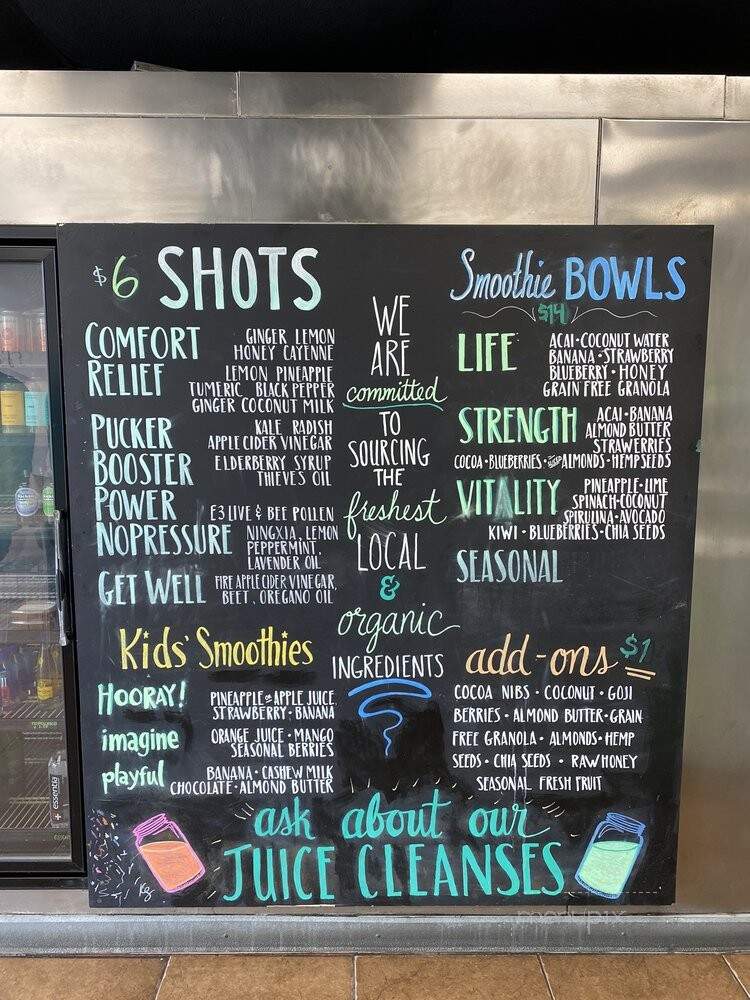 $6 SHOTS
COMFORT
GINGER LEMON
HONEY CAYENNE
RELIEF
LEMON PINEAPPLE
TUMERIC BLACK PEPPER
GINGER COCONUT MILK
PUCKER
KALE RADISH
APPLE CIDER VINEGAR
BOOSTER
ELDERBERRY SYRUP
THIEVES OIL
POWER
E3LIVE & BEE POLLEN
NOPRESSURE
NINGXIA, LEMON
PEPPERMINT,
LAVENDER OIL
GET WELL
FIRE APPLE CIDER VINEGAR,
BEET, OREGANO OIL
Kids' Smoothies
HOORAY!
PINEAPPLE OR APPLE JUICE
STRAWBERRY • BANANA
imagine
ORANGE JUICE • MANGO
SEASONAL BERRIES
playful
BANANA • CASHEW MILK
CHOCOLATE • ALMOND BUTTER
WE
ARE
committed
TO
SOURCING
THE
freshest
LOCAL
&
organic
INGREDIENTS
Smoothie BOWLS
$14
LIFE
ACAI • COCONUT WATER
BANANA • STRAWBERRY
BLUEBERRY • HONEY
GRAIN FREE GRANOLA
STRENGTH
ACAI • BANANA
ALMOND BUTTER
STRAWERRIES
COCOA • BLUEBERRIES • ALMONDS • HEMP SEEDS
VITALITY
PINEAPPLE • LIME
SPINACH • COCONUT
SPIRULINA • AVOCADO
KIWI • BLUEBERRIES • CHIA SEEDS
SEASONAL
add-ons $1
COCOA NIBS • COCONUT • GOJI
BERRIES • ALMOND BUTTER • GRAIN
FREE GRANOLA • ALMONDS • HEMP
SEEDS • CHIA SEEDS • RAW HONEY
SEASONAL FRESH FRUIT
ask about our
JUICE CLEANSES
essentia